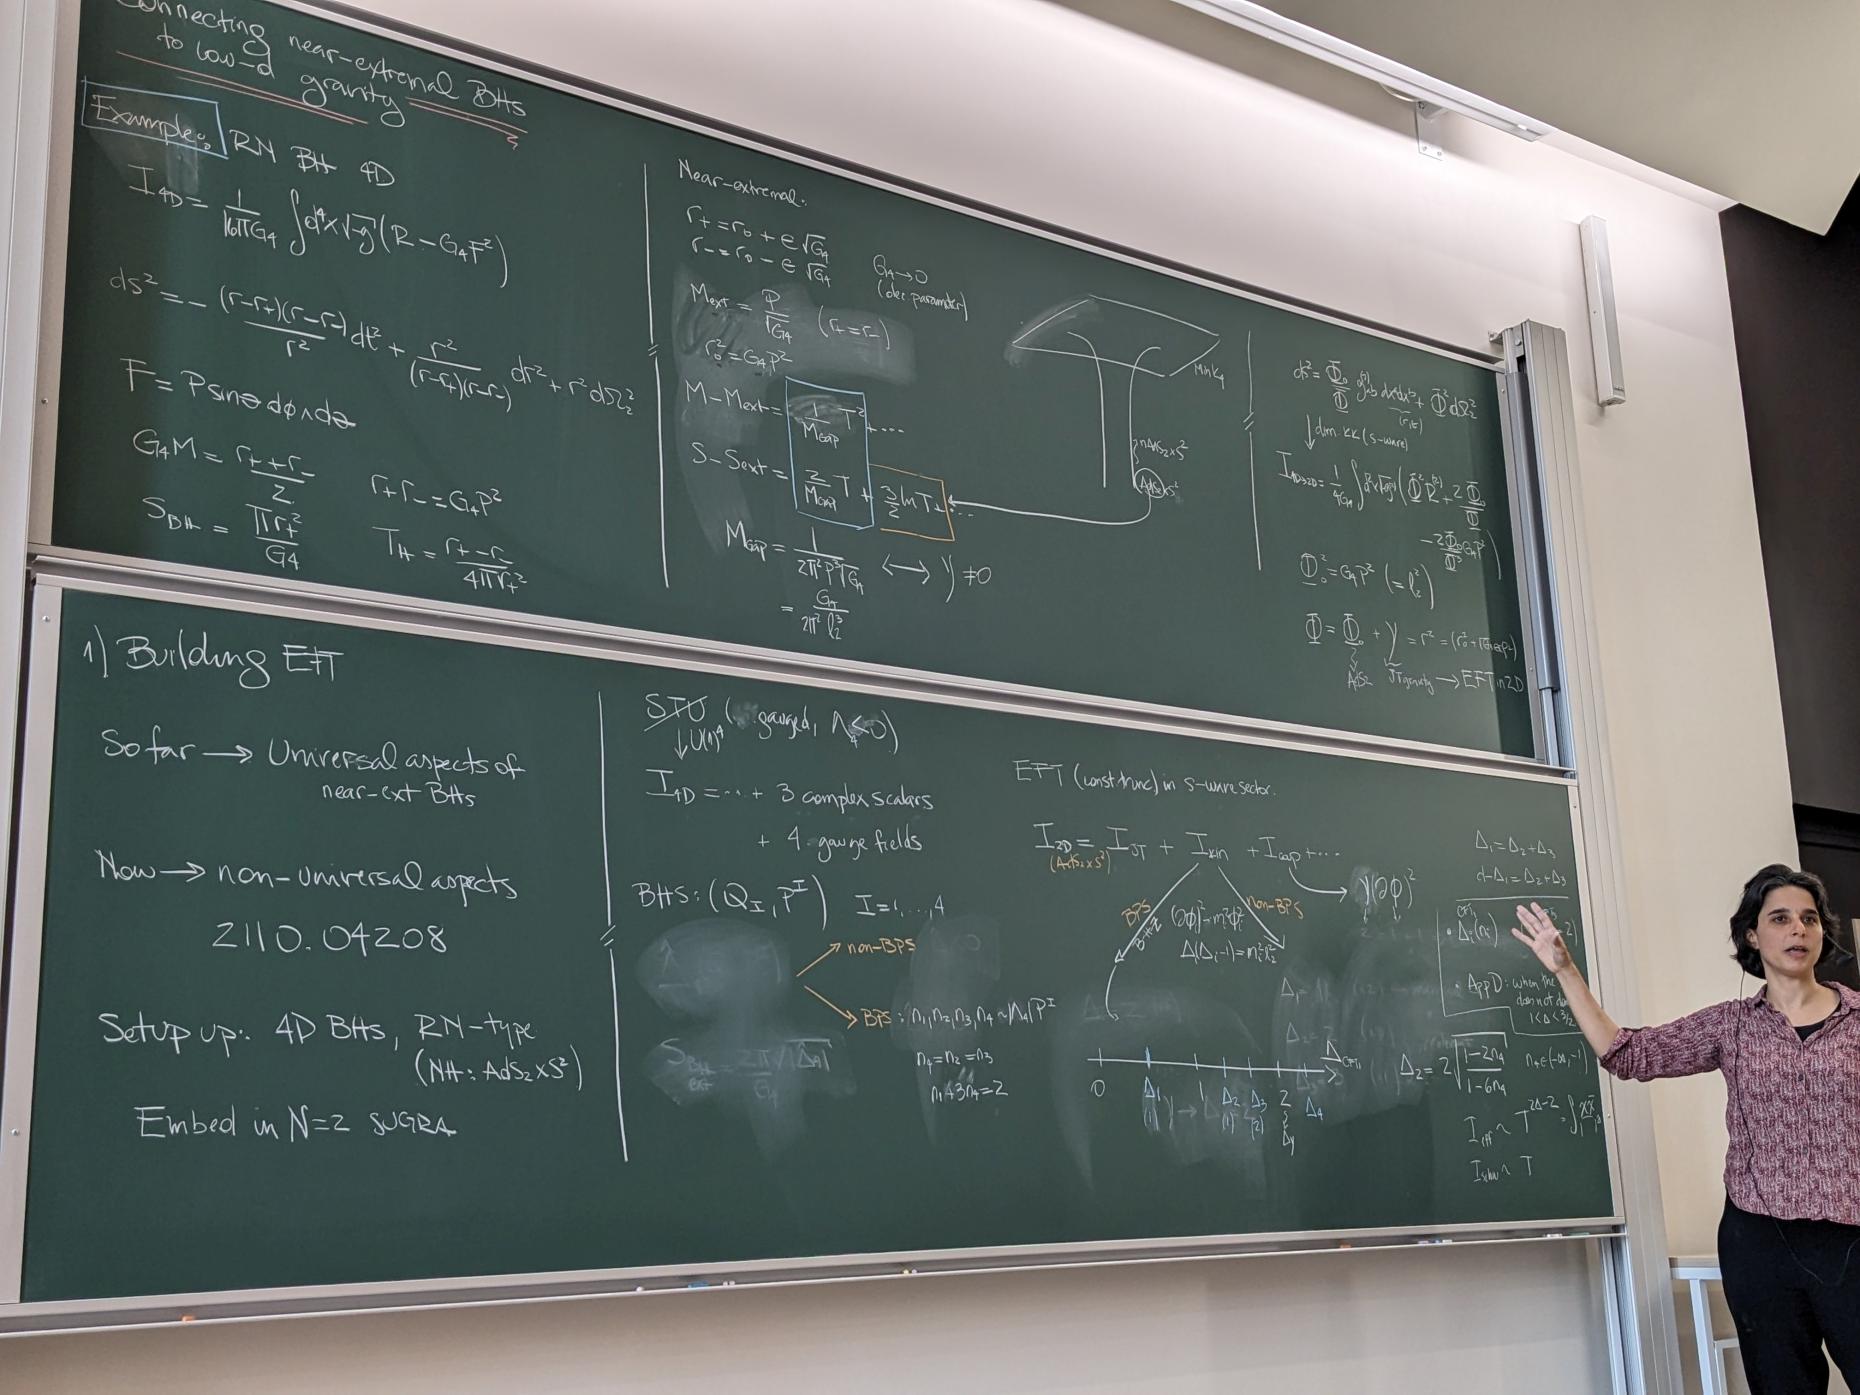 Connecting near-extremal BHs
to low-d gravity
Example: RN BH 4D
I_4D = 1/16πG_4 ∫d^4x√-g (R - G_4F^2)
ds^2 = - (r-r_+)(r-r_-)/r^2 dt^2 + r^2/(r-r_+)(r-r_-) dr^2 + r^2 dΩ_2^2
F = P sinθ dφ∧dθ
G_4M = r_+ + r_-/2
r_+r_- = G_4P^2
S_BH = πr_+^2/G_4
T_H = r_+ - r_-/4πr_+^2
Near-extremal:
r_+ = r_0 + ε√G_4
r_- = r_0 - ε√G_4
G_4→0
(dec. parameter)
M_ext = P/√G_4 (r_+ = r_-)
r_0^2 = G_4P^2
M - M_ext = 1/M_gap T^2 + ....
S - S_ext = 2/M_gap T + 3/2 ln T + ...
M_gap = 1/2π^2P^3√G_4 ⟷ Y ≠ 0
= G_4/2π^2 l_2^3
Mink_4
nAdS_2×S^2
AdS_2×S^2
ds^2 = Φ_0/Φ g_ab^(2) dx^a dx^b + Φ^2 dΩ_2^2
(r,t)
↓ dim. KK (s-wave)
I_4D→2D = 1/4G_4 ∫d^2x√-g (Φ^2R^(2) + 2 Φ_0/Φ
- 2Φ_0/Φ^3 G_4P^2)
Φ_0^2 = G_4P^2 (= l_2^2)
Φ = Φ_0 + Y
AdS_2 JT gravity → EFT in 2D
1) Building EFT
So far → Universal aspects of
near-ext BHs
Now → non-universal aspects
2110.04208
Setup up: 4D BHs, RN-type
(NH: AdS_2×S^2)
Embed in N=2 SUGRA
STU (gauged, Λ_4<0)
↓U(1)^4
I_4D = ... + 3 complex scalars
+ 4 gauge fields
BHS: (Q_I, P^I) I=1,...,4
non-BPS
BPS: n_1,n_2,n_3,n_4 ~ |Λ_4|P^I
n_4=n_2=n_3
n_1+3n_4=2
S_BH ext = 2π/G_4 √|Δ_4|
EFT (const. trunc) in s-wave sector.
I_2D = I_JT + I_kin + I_cap + ...
(AdS_2×S^2)
Y(∂φ)^2
BPS
non-BPS
(∂φ_i)^2 - m_i^2φ_i^2
Δ_i(Δ_i-1) = m_i^2 l_2^2
0 Δ_1 1 Δ_2 Δ_3 2 Δ_4 Δ_CFT1
(1) (1) (2) Δ_Y
Δ_1 = Δ_2+Δ_3
d-Δ_1 = Δ_2+Δ_3
Δ_i(n_i)
App D: when the
does not
1<Δ<3/2
Δ_2 = 2 √1-2n_4/1-6n_4
n_4∈(-∞,-1)
I_eff ~ T^2Δ-2
I_schw ~ T